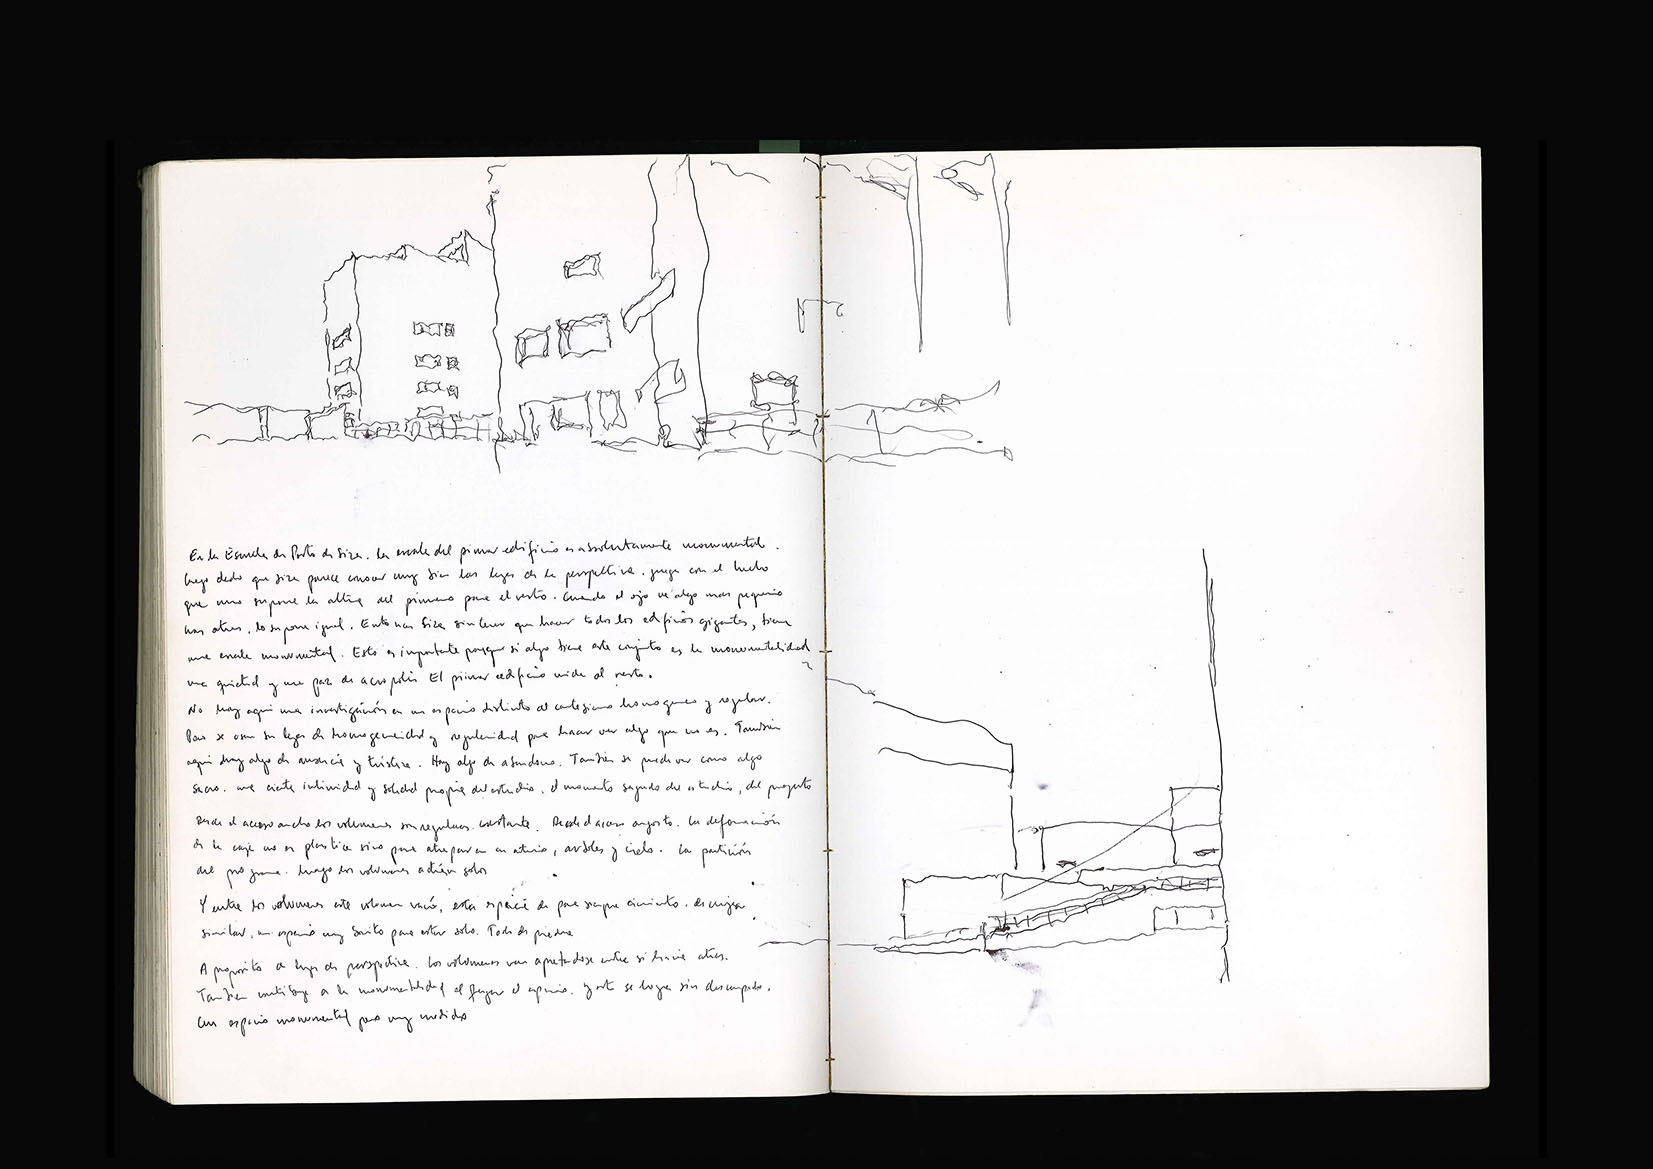 En la Escuela de Porto de Siza. La escala del primer edificio es absolutamente monumental.
luego dado que Siza parece conocer muy bien las leyes de la perspectiva. juega con el hecho
que uno supone la altura del primero para el resto. Cuando el ojo ve algo mas pequeño
tras otras, lo supone igual. Entonces Siza sin tener que hacer todos los edificios gigantes, tiene
una escala monumental. Esto es importante porque si algo tiene este conjunto es la monumentalidad
una quietud y una paz de acropolis El primer edificio mide el resto.
No hay aqui una investigación en un espacio distinto al cartesiano homogeneo y regular.
Pero se usan sus leyes de homogeneidad y regularidad para hacer ver algo que no es. También
aqui hay algo de ausencia y tristeza. Hay algo de abandono. También se puede ver como algo
sacro. una cierta intimidad y soledad propia del estudio. el momento sagrado del estudio, del proyecto
Desde el acceso ancho los volumenes son regulares. constante. Desde el acceso angosto. La deformación
de la caja no es plastica sino para atrapar en atrio, arboles y cielo. La partición
del programa. luego los volumenes solos
Y entre los volumenes este volumen vacio, esta especie de para siempre
similar, un espacio muy bonito para estar solo. Todo de piedra
A proposito de leyes de perspectiva. Los volúmenes van apretandose entre si hacia atras.
Tambien a la monumentalidad el el espacio. y esto se logra sin
Un espacio monumental pero muy medido